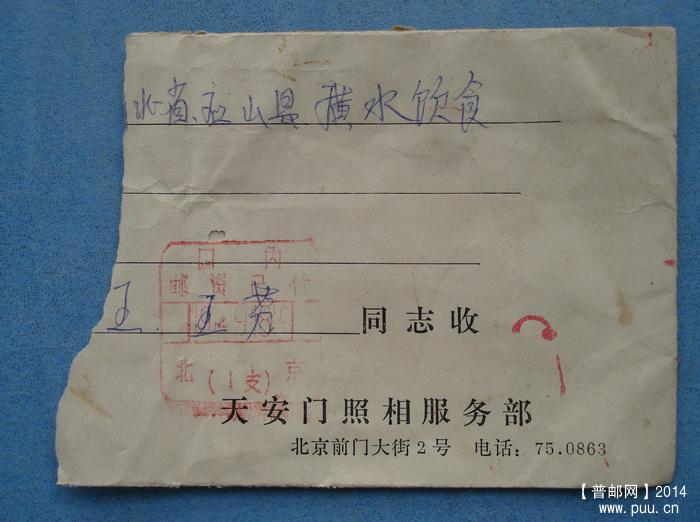 北省应山县横水饮食
国内
邮资已付
王.王芳
同志收
北(1支)京
天安门照相服务部
北京前门大街2号 电话:75.0863
【普邮网】2014
www.puu.cn